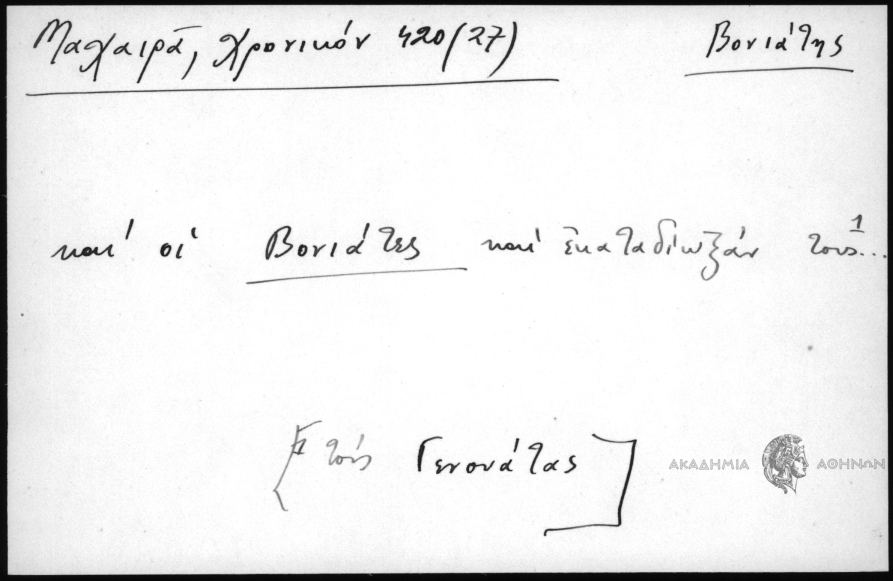 Μαχαιρᾶ, Χρονικόν 420 (27) Βονιάτης
καί οἱ Βονιάτες καί ἐκαταδίωξάν τους¹...
[1 τούς Γενουάτας]
ΑΚΑΔΗΜΙΑ ΑΘΗΝΩΝ